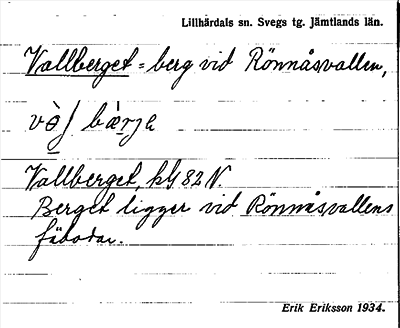 Lillhärdals sn. Svegs tg. Jämtlands län.
Vallberget = berg vid Rönnåsvallen,
Vallberget, kbl 82 N.
Berget ligger vid Rönnåsvallens
fäbodar.
Erik Eriksson 1934.